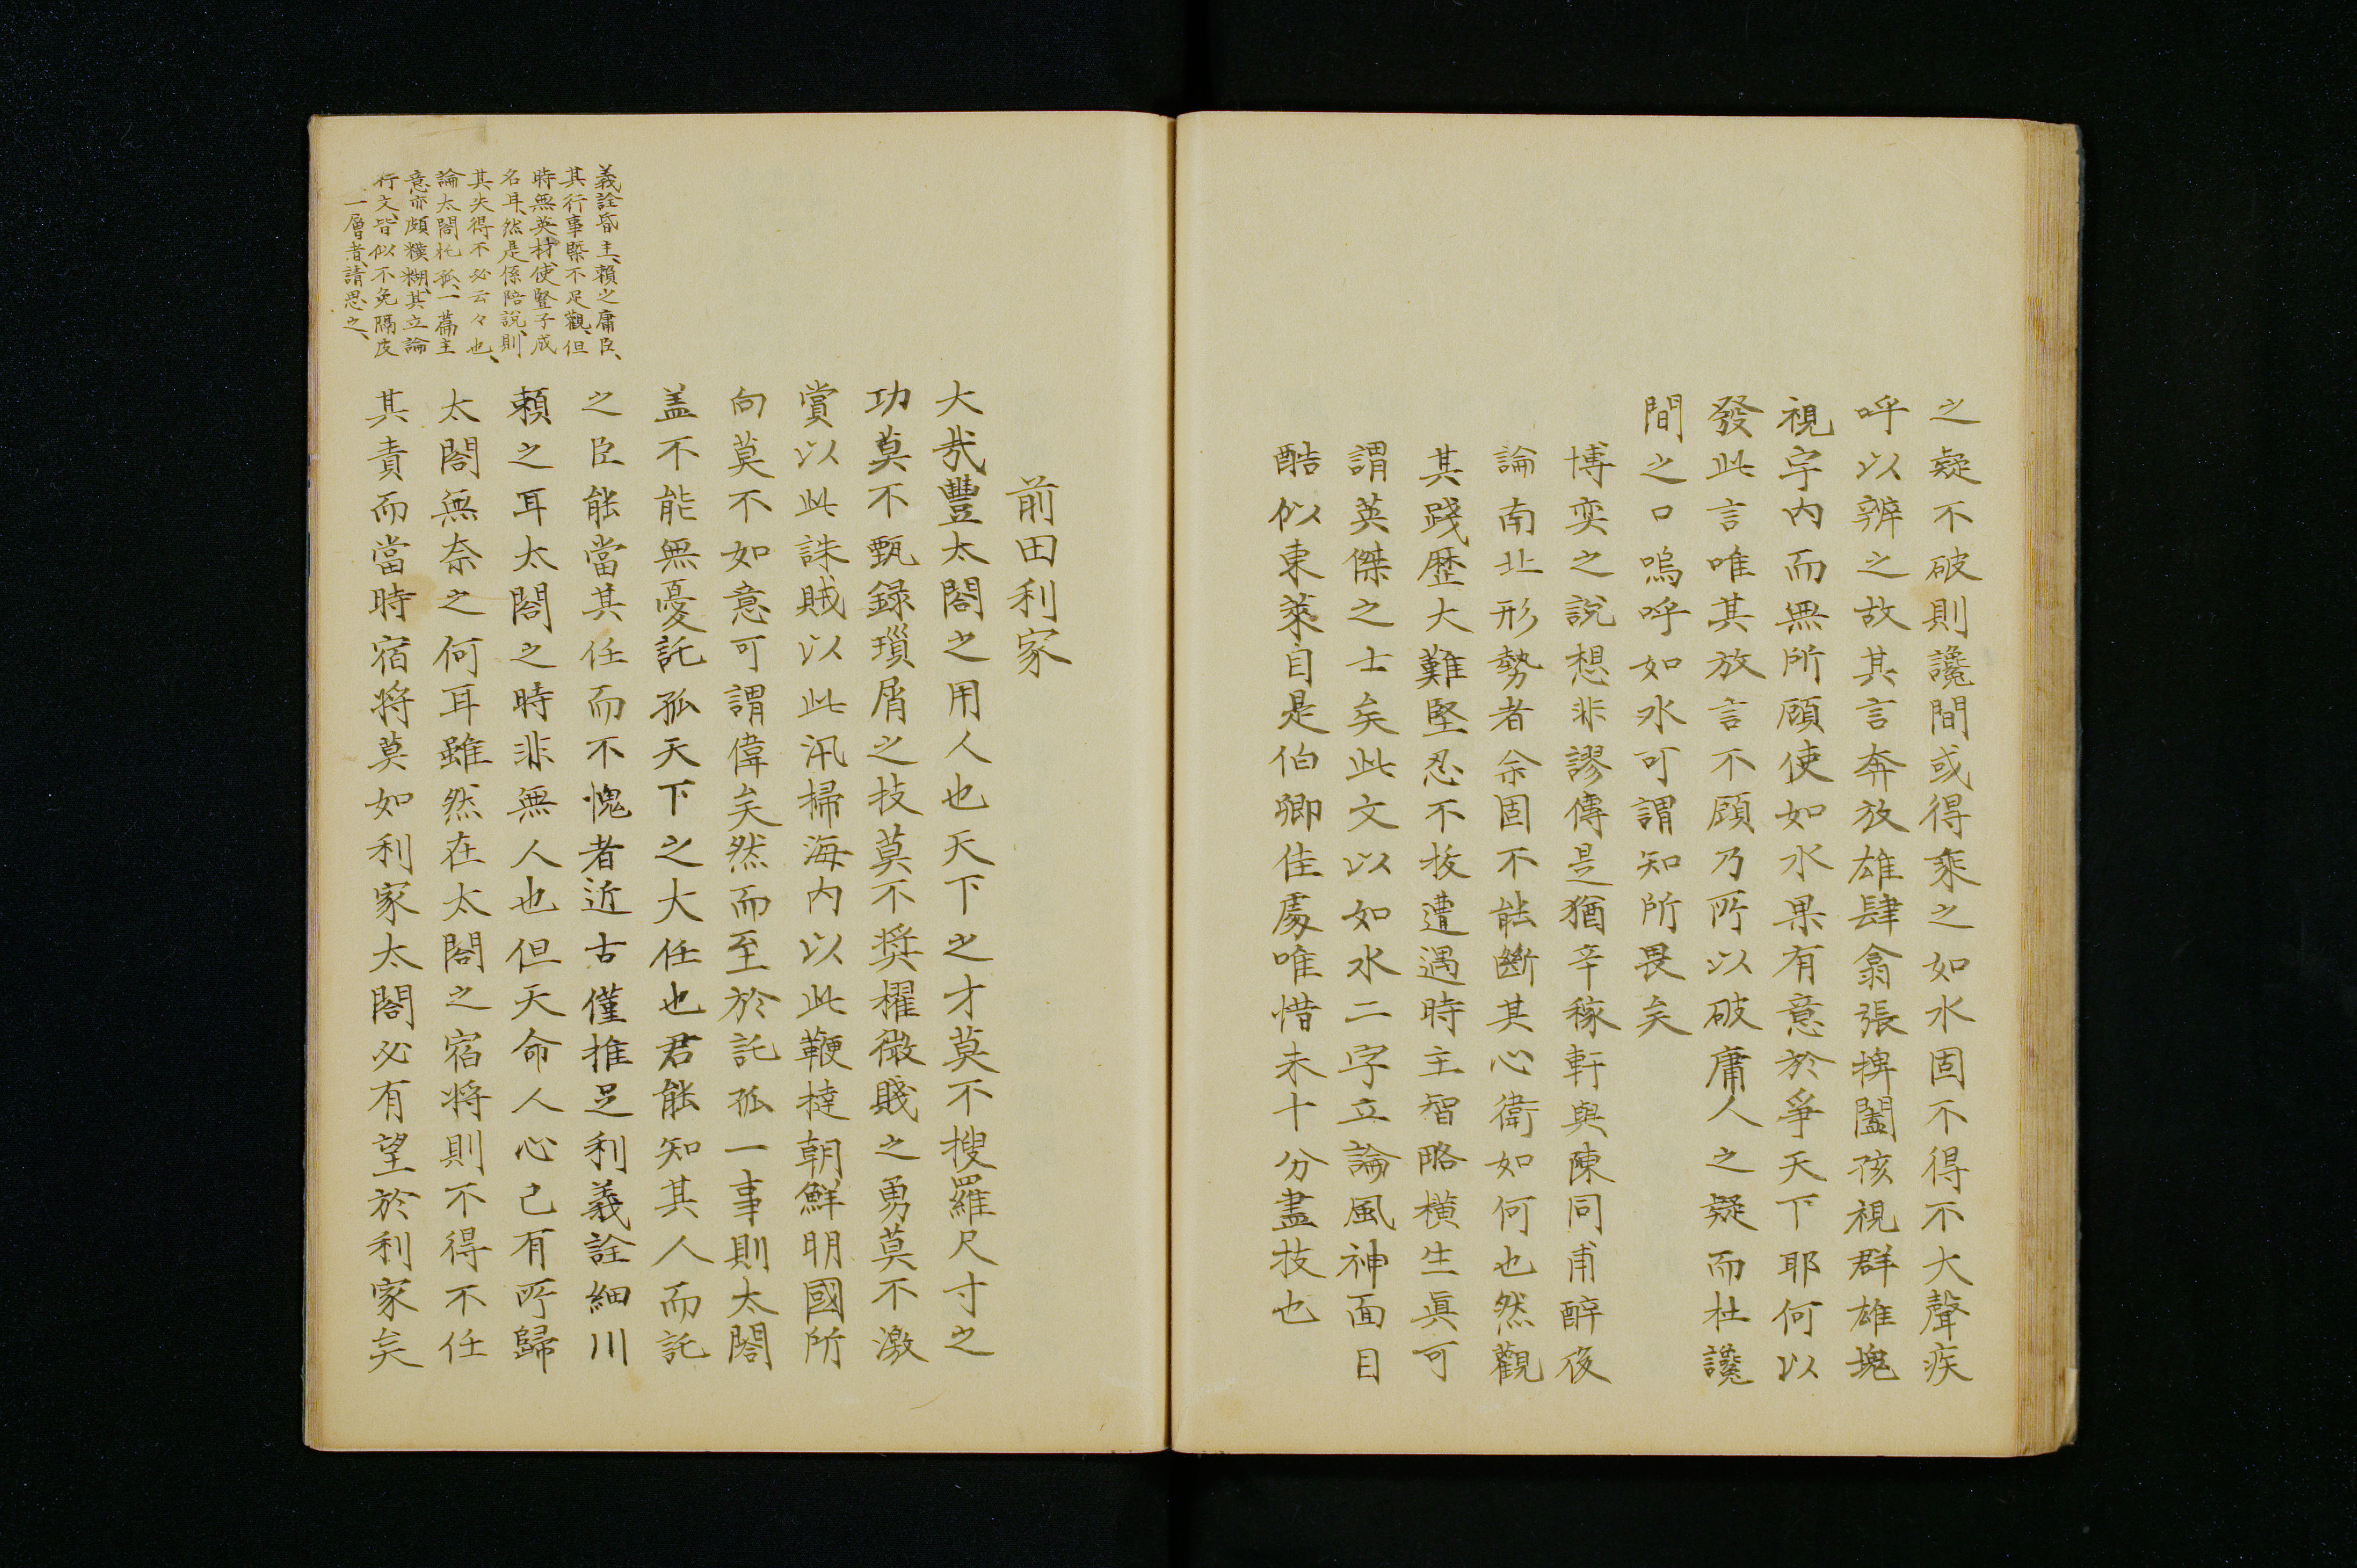 之疑不破則讒間或得乘之如水固不得不大聲疾
呼以辨之故其言奔放雄肆翕張捭闔孩視群雄塊
視宇内而無所顧使如水果有意於爭天下耶何以
發此言唯其放言不顧乃所以破庸人之疑而杜讒
間之口嗚呼如水可謂知所畏矣
博奕之說想非謬傳是猶辛稼軒與陳同甫醉後
論南北形勢者余固不能斷其心術如何也然觀
其踐歷大難堅忍不拔遭遇時主智略橫生眞可
謂英傑之士矣此文以如水二字立論風神面目
酷似東萊自是伯卿佳處唯惜未十分盡技也
前田利家
大哉豐太閤之用人也天下之才莫不搜羅尺寸之
功莫不甄錄瑣屑之技莫不奬櫂微賤之勇莫不激
賞以此誅賊以此汛掃海内以此鞭撻朝鮮明國所
向莫不如意可謂偉矣然而至於託孤一事則太閤
盖不能無憂託孤天下之大任也君能知其人而託
之臣能當其任而不愧者近古僅推足利義詮細川
賴之耳太閤之時非無人也但天命人心已有所歸
太閤無奈之何耳雖然在太閤之宿將則不得不任
其責而當時宿將莫如利家太閤必有望於利家矣
義詮昏主、賴之庸臣、
其行事槩不足觀、但
時無英材、使豎子成
名耳、然是係陪說、則
其失得不必云々也、
論太閤托孤、一篇主
意亦頗糢糊、其立論
行文、皆似不免隔皮
一層者、請思之、